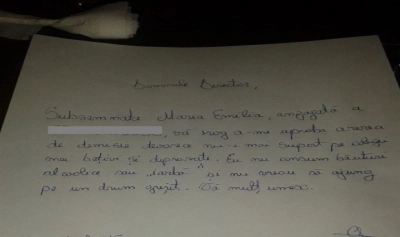 Domnule Director,
Subsemnata Maria Emilia, angajată a
, vă rog a-mi aproba cererea
de demisie deoarece nu-i mai suport pe colegii
mei bețivi și depravați. Eu nu consum băuturi
alcolice sau „iarbă” și nu vreau să ajung
pe un drum greșit. Vă mulțumesc.